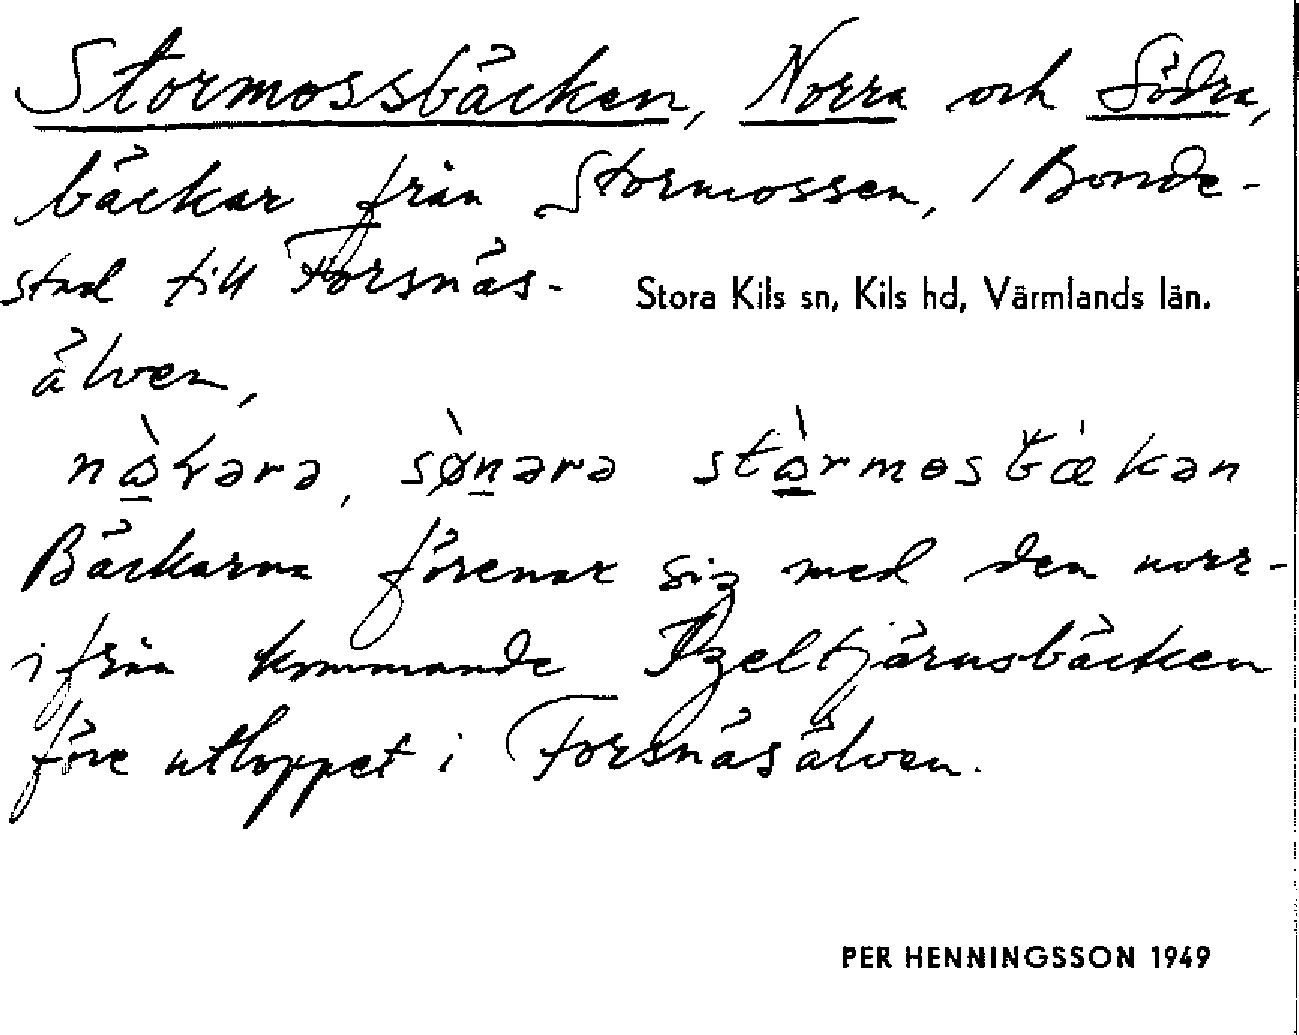 Stormossbäcken, Norra och Södra,
bäckar från Stormossen, i Bonde-
stad till Forsnäs-
Stora Kils sn, Kils hd, Värmlands län.
älven,
Bäckarna förenar sig med den norr-
ifrån kommande Ageltjärnsbäcken
före utloppet i Forsnäsälven.
PER HENNINGSSON 1949